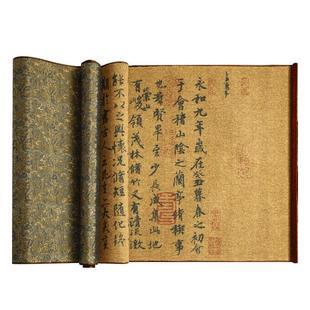 永和九年歲在癸丑暮春之初會
于會稽山陰之蘭亭脩稧事
也羣賢畢至少長咸集此地
有崇山峻領茂林脩竹又有清流激
能不以之興懷況脩短隨化終
期於盡古人云死生亦大矣